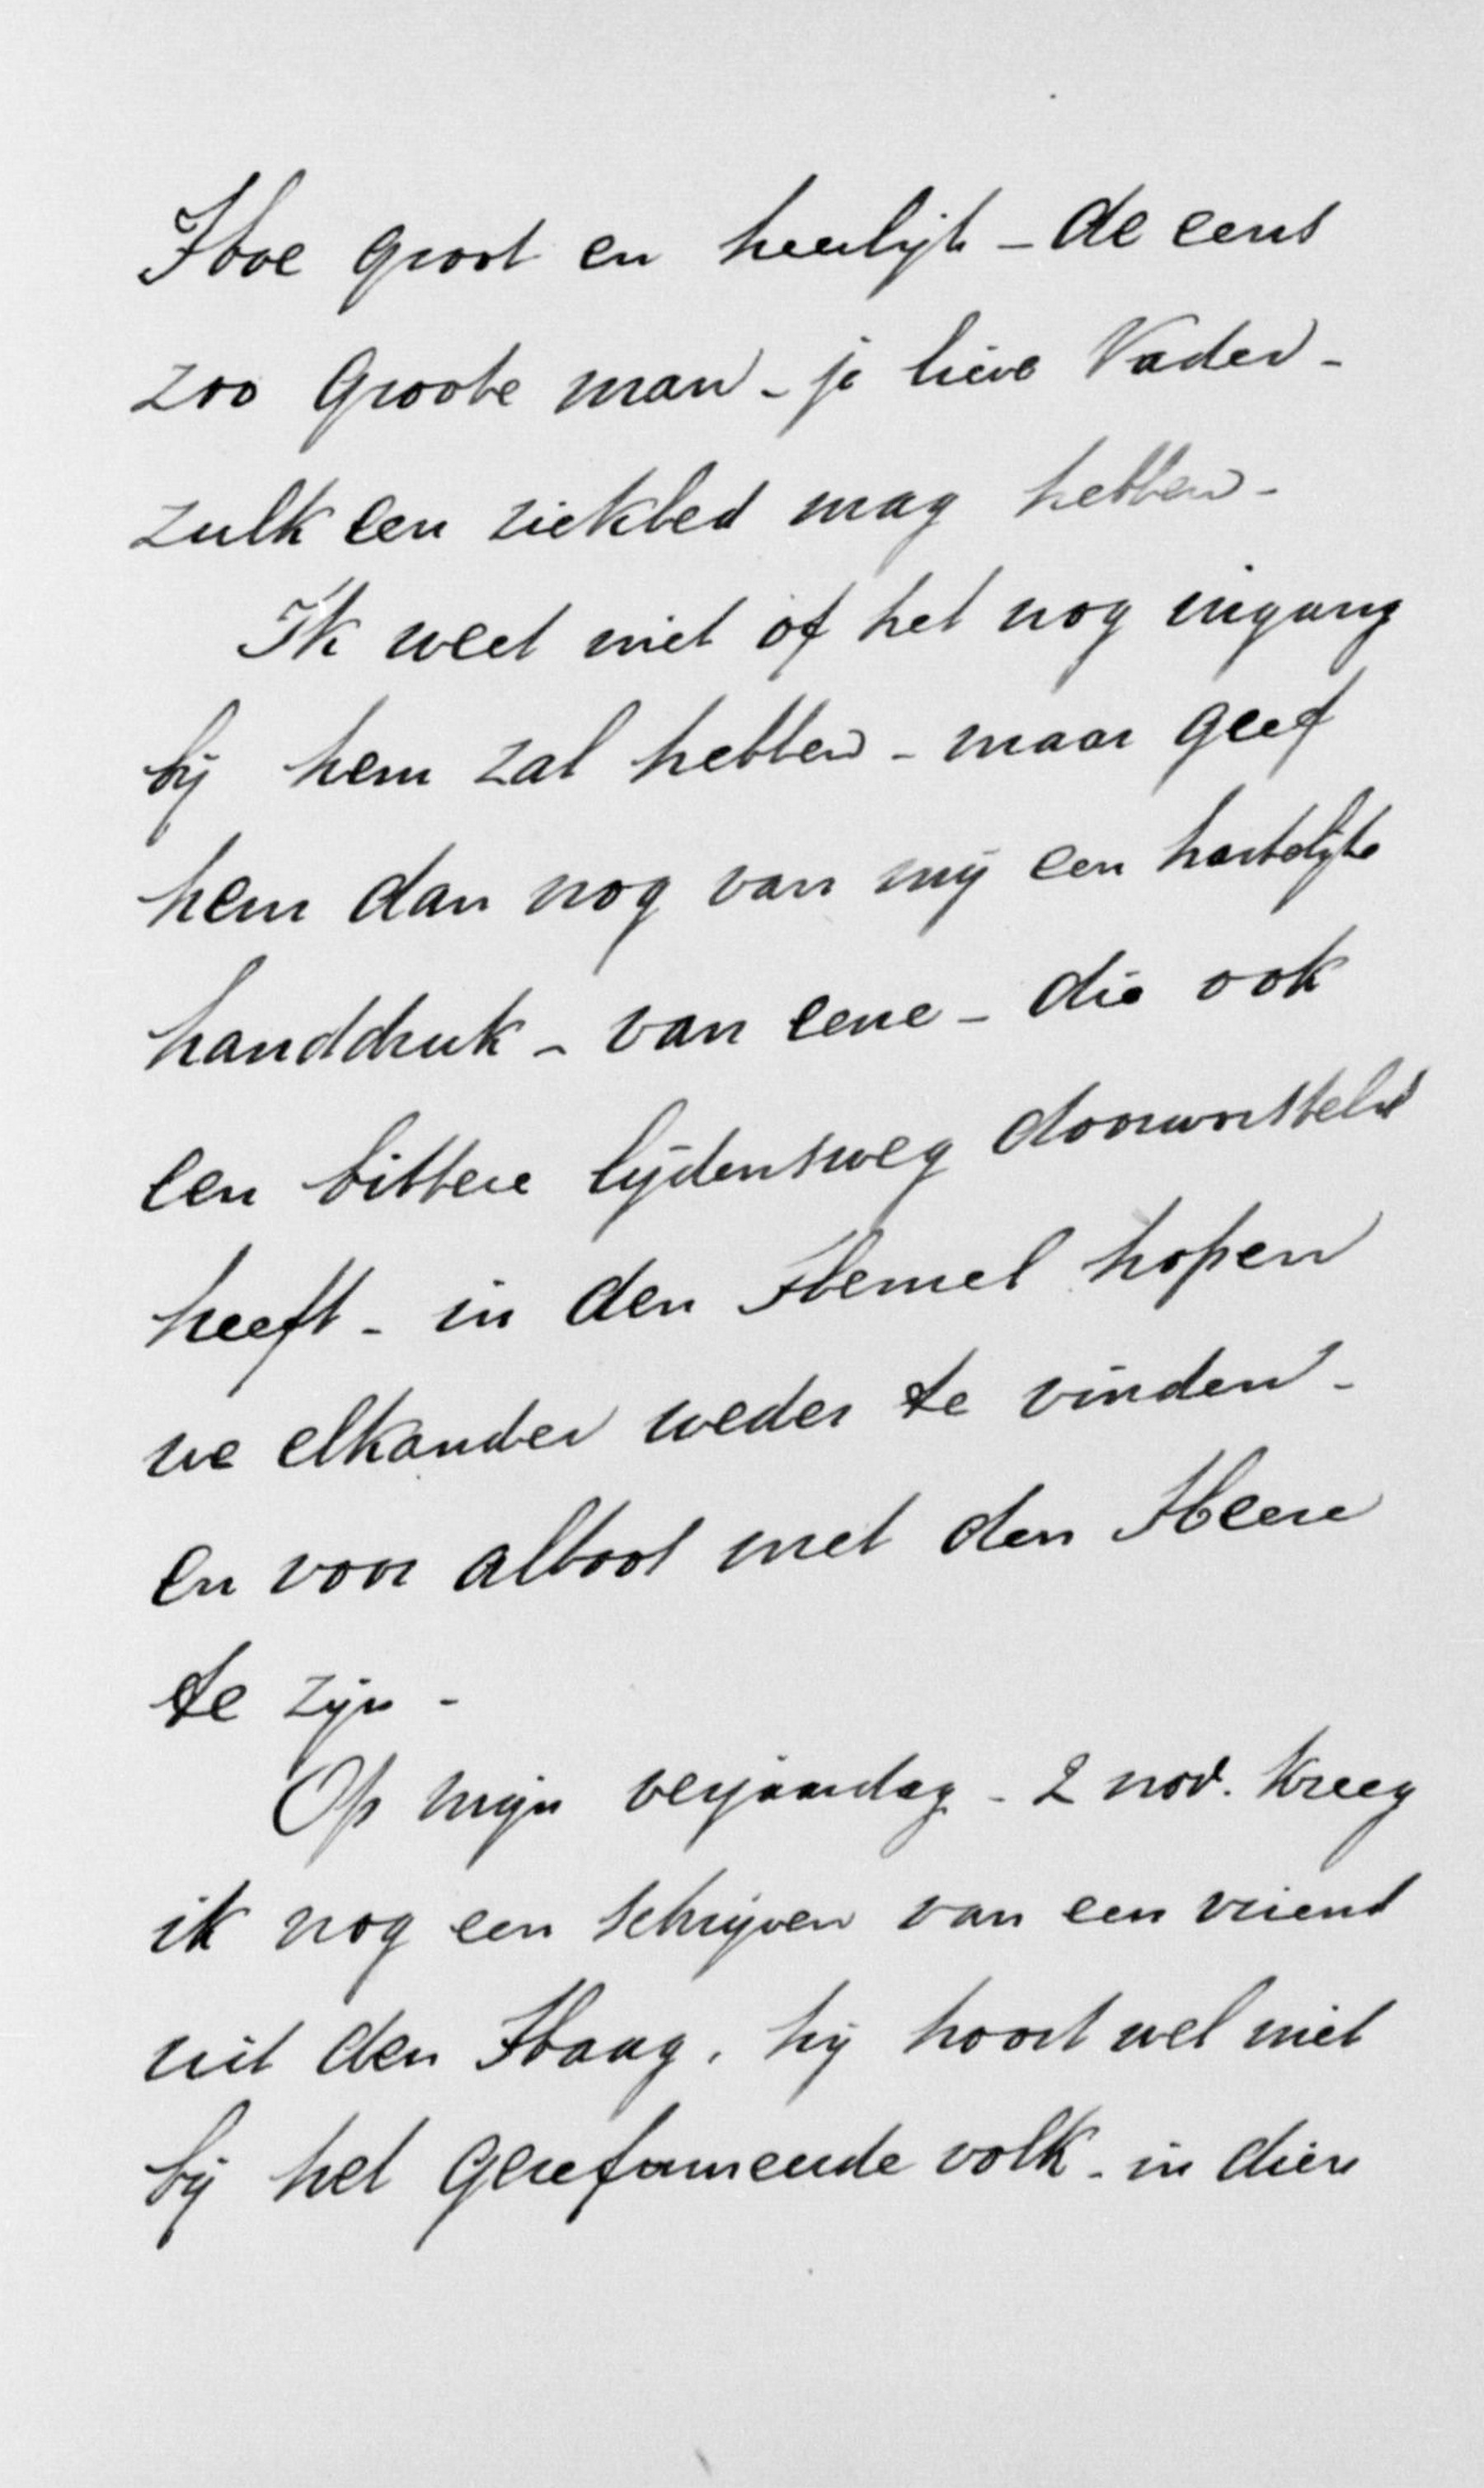 Hoe groot en heerlijk - de eens
zoo Groote man - je lieve Vader -
zulk een ziekbed mag hebben -
Ik weet niet of het nog ingang
bij hem zal hebben - maar geef
hem dan nog van mij een hartelijke
handdruk - van eene - die ook
een bittere lijdensweg doorworsteld
heeft - in den Hemel hopen
we elkander weder te vinden -
en voor altoos met den Heere
te zijn -
Op mijn verjaardag - 2 nov. kreeg
ik nog een schrijven van een vriend
uit den Haag. hij hoort wel niet
bij het Gereformeerde volk - in dien